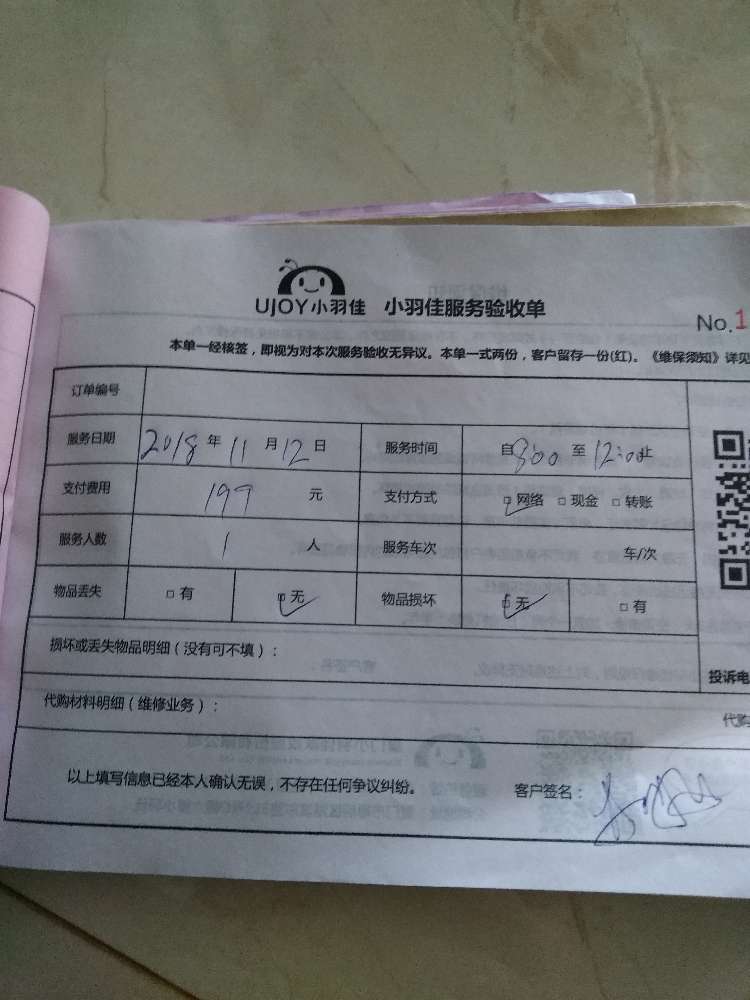 UJOY小羽佳 小羽佳服务验收单
No.1
本单一经核签，即视为对本次服务验收无异议。本单一式两份，客户留存一份(红)。《维保须知》详见
订单编号
服务日期 2018 年 11 月 12 日 服务时间 自 8:00 至 12:00 止
支付费用 199 元 支付方式 □ 网络 □ 现金 □ 转账
服务人数 1 人 服务车次 车/次
物品丢失 □ 有 □ 无 物品损坏 □ 无 □ 有
损坏或丢失物品明细（没有可不填）：
投诉电
代购材料明细（维修业务）：
代购
以上填写信息已经本人确认无误，不存在任何争议纠纷。 客户签名：